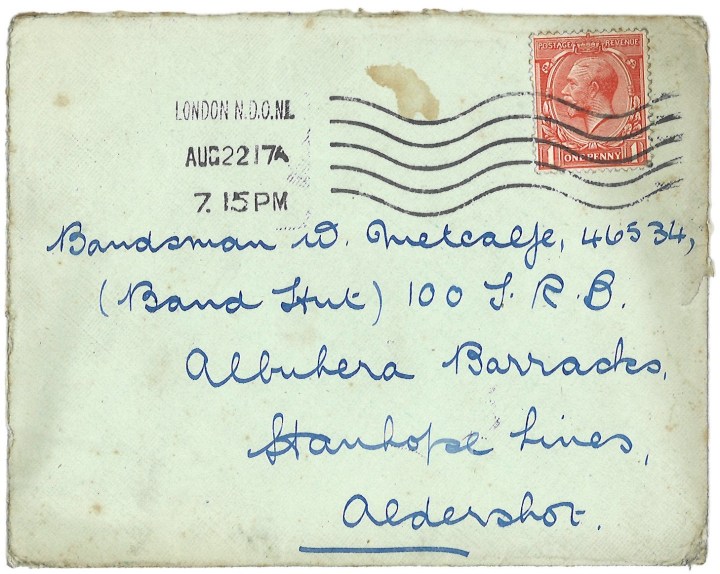 POSTAGE REVENUE
1 ONE PENNY 1
LONDON N.D.O.N1.
AUG 22 17 A
7. 15 PM
Bandsman W. Metcalfe, 46534,
(Band Hut) 100 T. R. B.
Albuhera Barracks,
Stanhope Lines,
Aldershot.